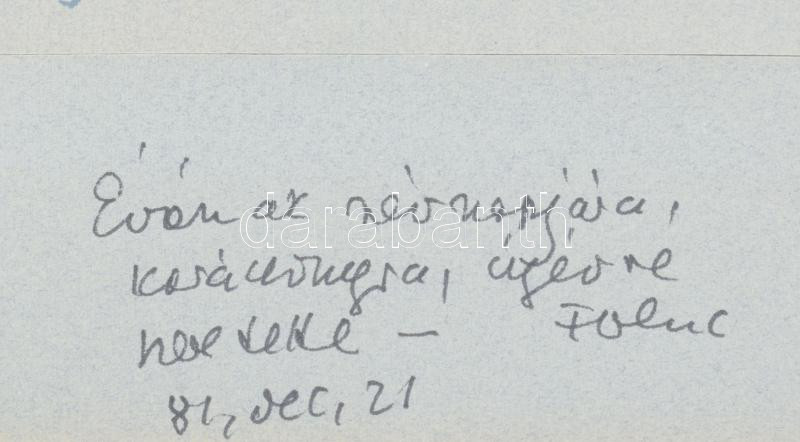 Évának névnapjára,
karácsonyra, újévre
szeretettel — Ferenc
81, dec, 21
darabanth